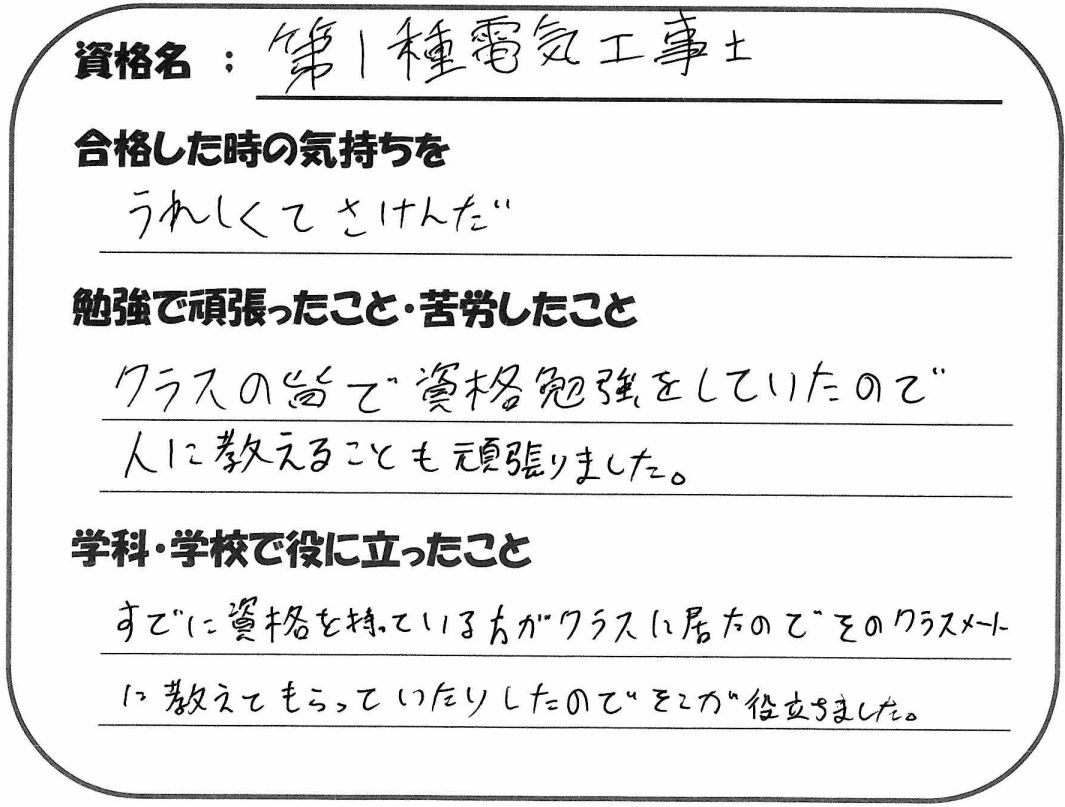 資格名 : 第1種電気工事士
合格した時の気持ちを
うれしくてさけんだ
勉強で頑張ったこと・苦労したこと
クラスの皆で資格勉強をしていたので
人に教えることも頑張りました。
学科・学校で役に立ったこと
すでに資格を持っている方がクラスに居たのでそのクラスメート
に教えてもらっていたりしたのでそこが役立ちました。